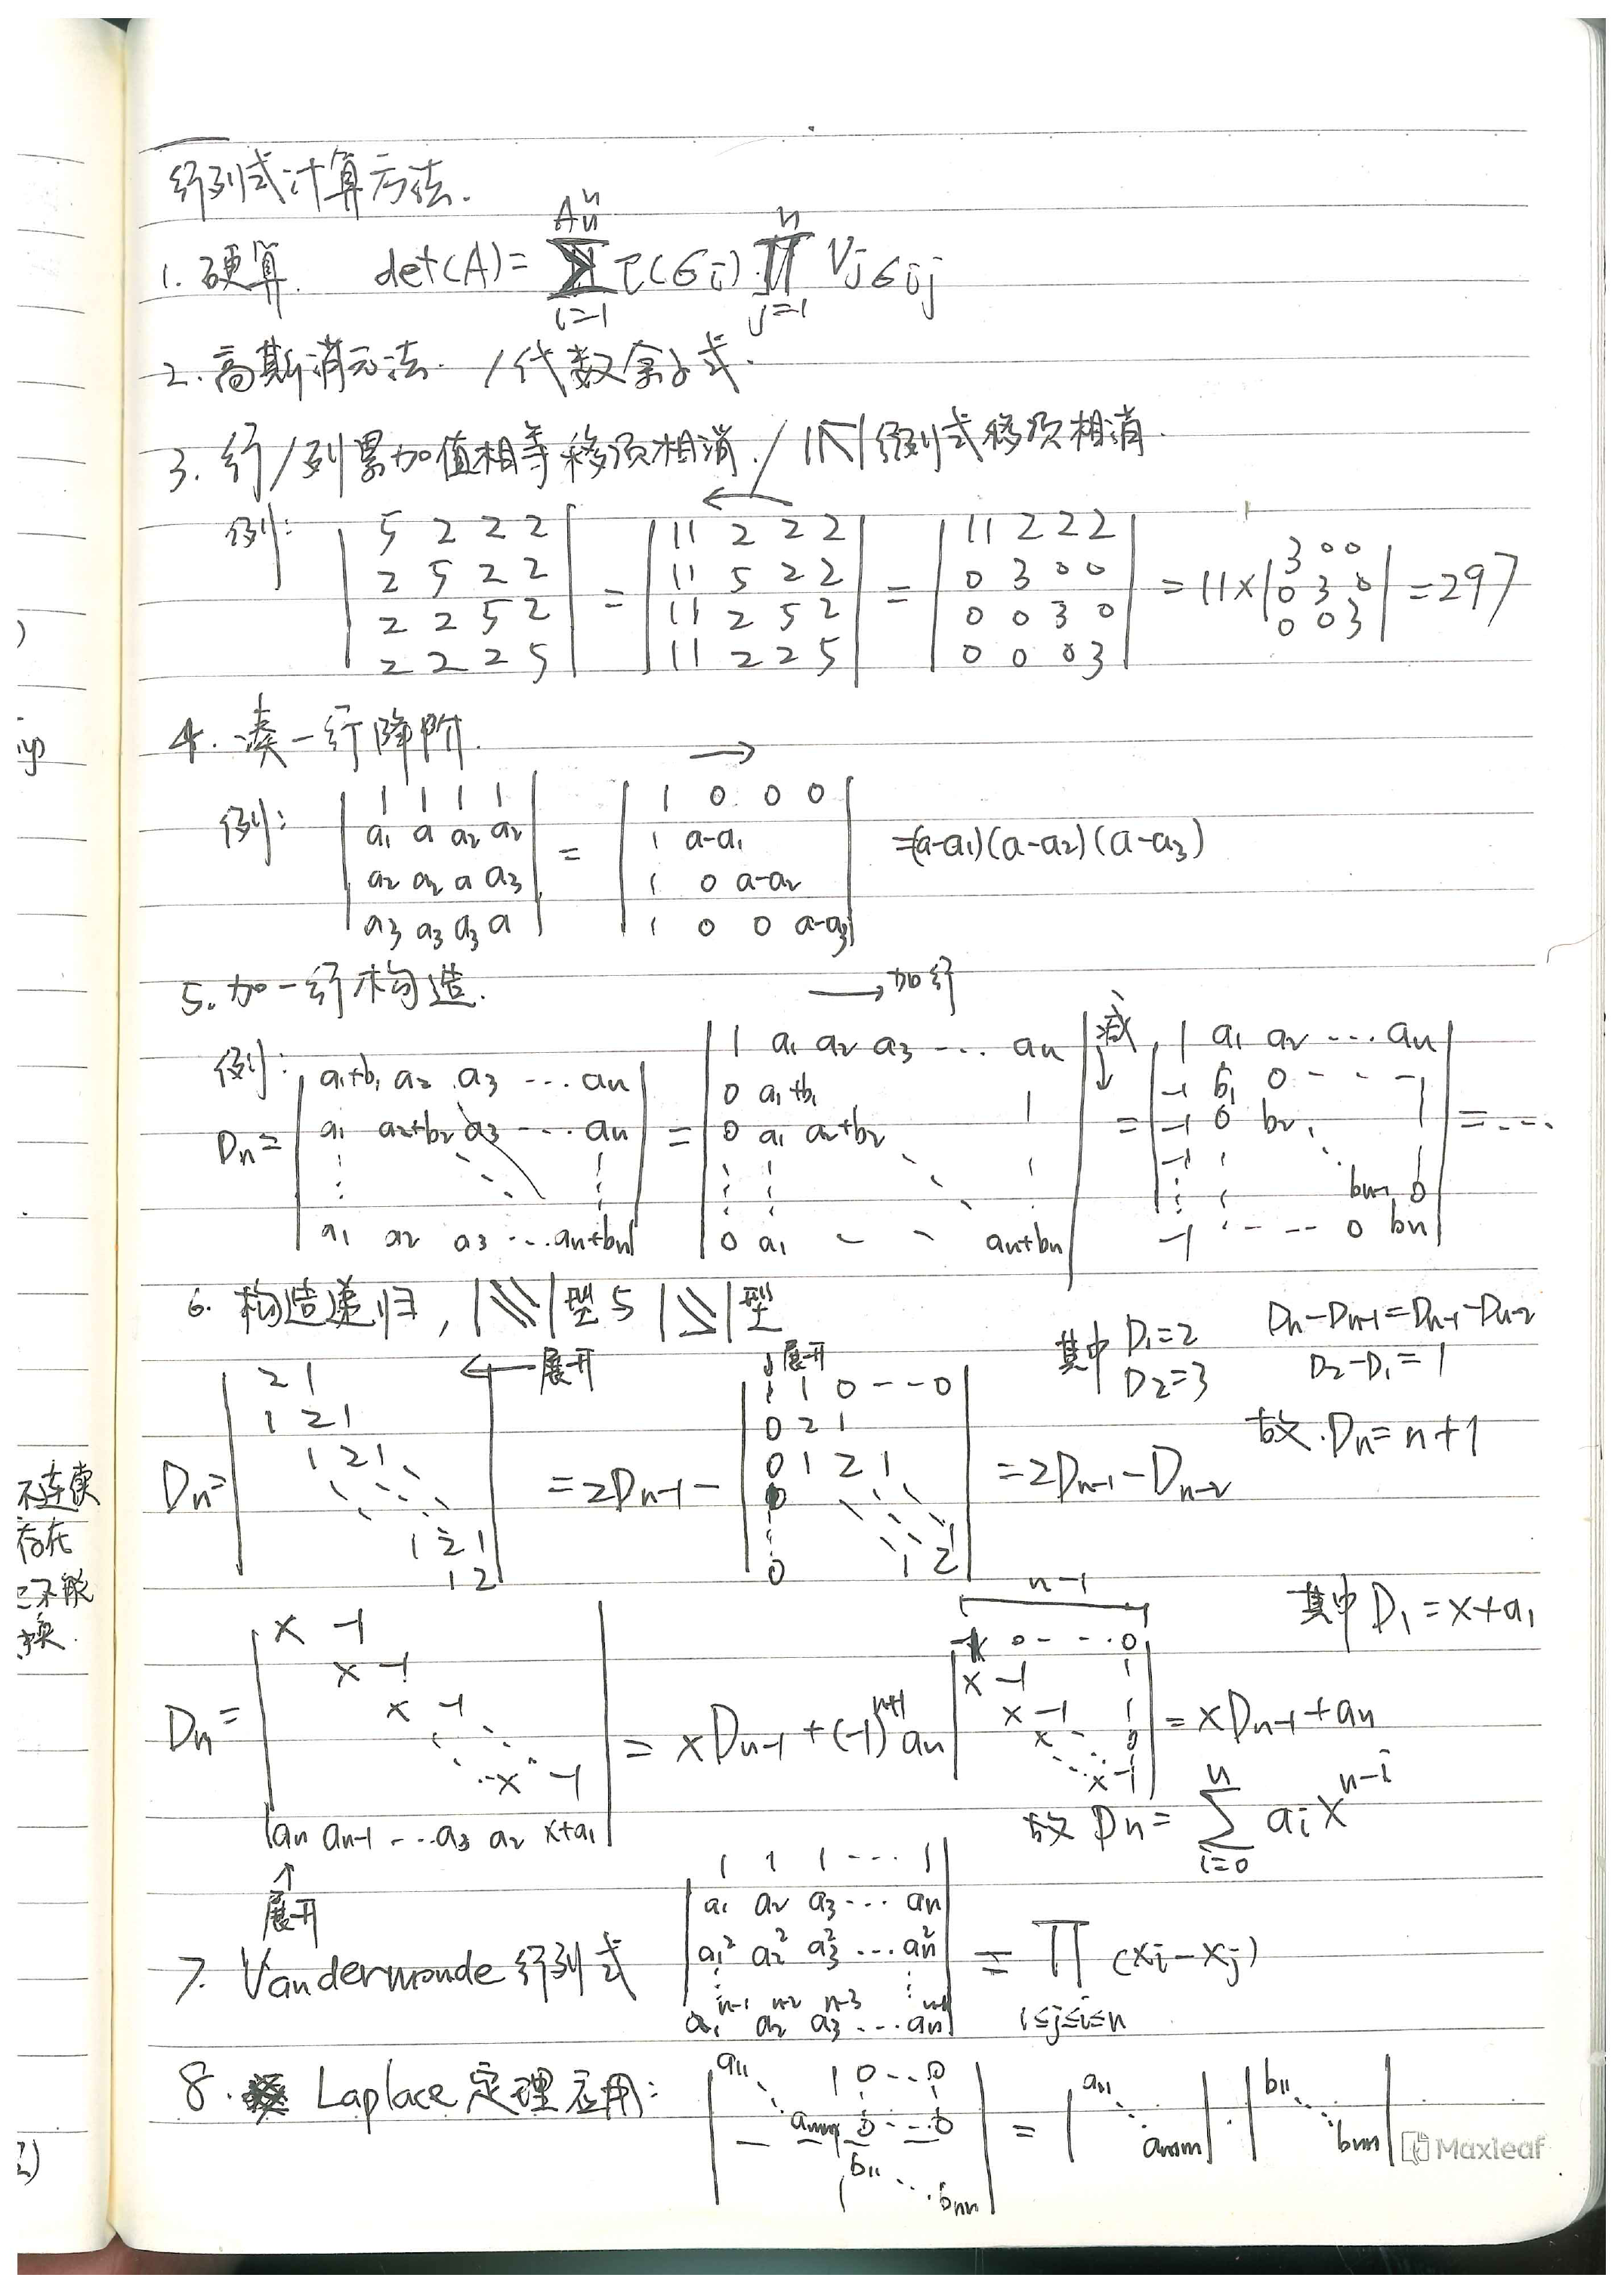 行列式计算方法.
1. 硬算. det(A) = \sum_{i=1}^{A_n^n} τ(σi) · \prod_{j=1}^{n} V_{jσij}
2. 高斯消元法. / 代数余子式.
3. 行/列累加值相等移项相消. / |K| 行列式移项相消.
例: | 5 2 2 2 ; 2 5 2 2 ; 2 2 5 2 ; 2 2 2 5 | = | 11 2 2 2 ; 11 5 2 2 ; 11 2 5 2 ; 11 2 2 5 | = | 11 2 2 2 ; 0 3 0 0 ; 0 0 3 0 ; 0 0 0 3 | = 11 × | 3 0 0 ; 0 3 0 ; 0 0 3 | = 297
4. 凑一行降阶. →
例: | 1 1 1 1 ; a1 a a2 a2 ; a2 a2 a a3 ; a3 a3 a3 a | = | 1 0 0 0 ; 1 a-a1 ; 1 0 a-a2 ; 1 0 0 a-a3 | = (a-a1)(a-a2)(a-a3)
5. 加一行构造. → 加行
例: Dn = | a1+b1 a2 a3 ... an ; a1 a2+b2 a3 ... an ; ⋮ ; a1 a2 a3 ... an+bn | = | 1 a1 a2 a3 ... an ; 0 a1+b1 ; 0 a1 a2+b2 ; ⋮ ; 0 a1 ... an+bn | 减↓ = | 1 a1 a2 ... an ; -1 b1 0 ... ; -1 0 b2 ; -1 ⋮ bn-1 0 ; -1 ... 0 bn | = ...
6. 构造递归, |⋱| 型与 |⋱| 型
其中 D1=2 D2=3
Dn-Dn-1=Dn-1-Dn-2
D2-D1=1
故.Dn=n+1
Dn = | 2 1 ; 1 2 1 ; 1 2 1 ; ⋱ ; 1 2 1 ; 1 2 | ←展开 = 2Dn-1 - | 1 1 0 --0 ; 0 2 1 ; 0 1 2 1 ; 0 ; ⋮ 1 ; 0 1 2 | ↓展开 = 2Dn-1 - Dn-2
其中 D1 = x+a1
Dn = | x -1 ; x -1 ; x -1 ; ⋱ x -1 ; an an-1 ... a3 a2 x+a1 | = xDn-1 + (-1)^{n+1} an | -1 0 - - 0 ; x -1 ; x -1 ; x 0 ; x -1 | n-1 = xDn-1 + an
↑展开
故 Dn = \sum_{i=0}^{n} ai x^{n-i}
7. Vandermonde 行列式 | 1 1 1 ... 1 ; a1 a2 a3 ... an ; a1^2 a2^2 a3^2 ... an^2 ; ⋮ ; a1^{n-1} a2^{n-2} a3^{n-3} ... an^{n-1} | = ∏_{1≤j≤i≤n} (xi-xj)
8. Laplace 定理应用: | a11 ⋱ amm 0 ... 0 ; b11 ⋱ bnn | = | a11 ⋱ amm | · | b11 ⋱ bnn |
Maxleaf
不连续
存在
不能
换.